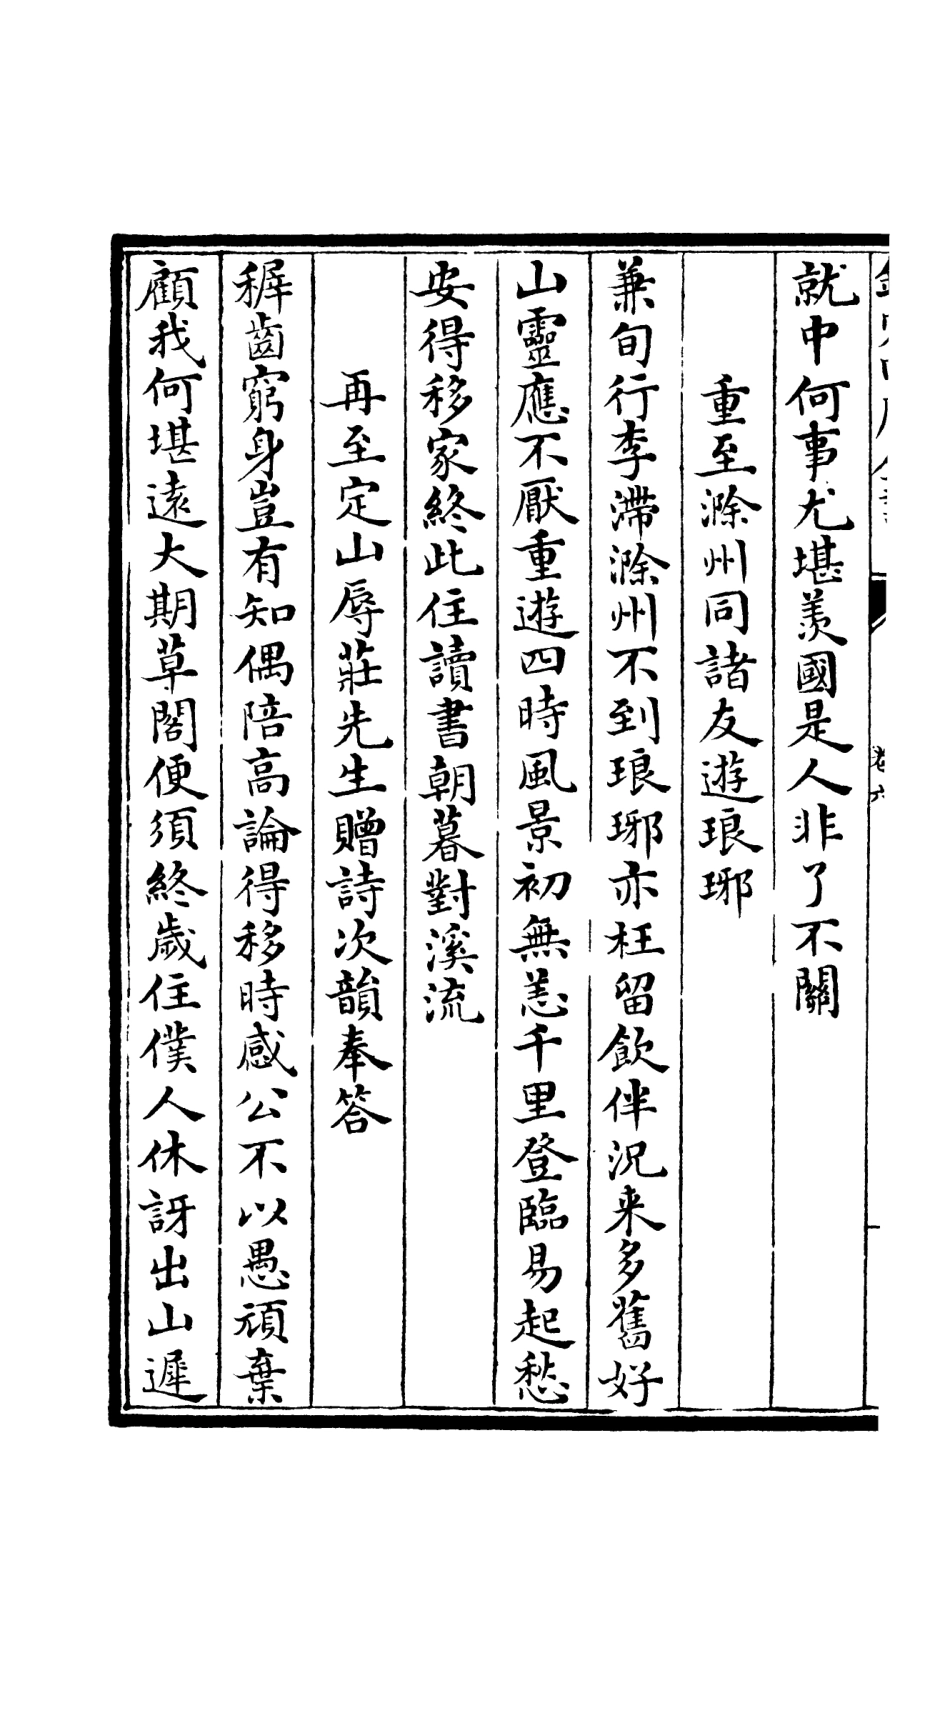 就中何事尤堪羨國是人非了不關
重至滁州同諸友遊琅琊
兼旬行李滯滁州不到琅琊亦枉留飲伴況来多舊好
山靈應不厭重遊四時風景初無恙千里登臨易起愁
安得移家終此住讀書朝暮對溪流
再至定山辱莊先生贈詩次韻奉答
穉齒窮身豈有知偶陪高論得移時感公不以愚頑棄
顧我何堪遠大期草閣便須終歲住僕人休訝出山遲